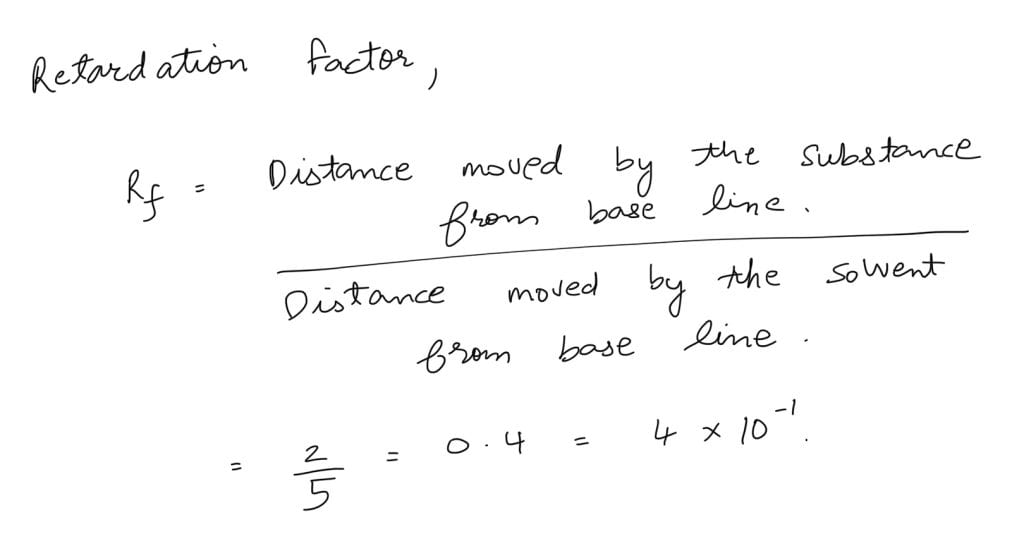 Retardation factor,
Rf = Distance moved by the substance
from base line.
Distance moved by the solvent
from base line.
= 2/5 = 0.4 = 4 x 10⁻¹.